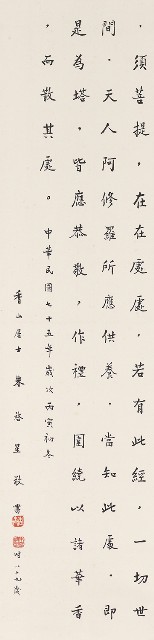 ，須菩提，在在處處，若有此經，一切世
間．天人阿修羅所應供養．當知此處．即
是為塔，皆應恭敬，作禮，圍繞以諸華香
，而散其處。中華民國七十五年歲次丙寅初冬
香山居士 敬書 時八十九歲